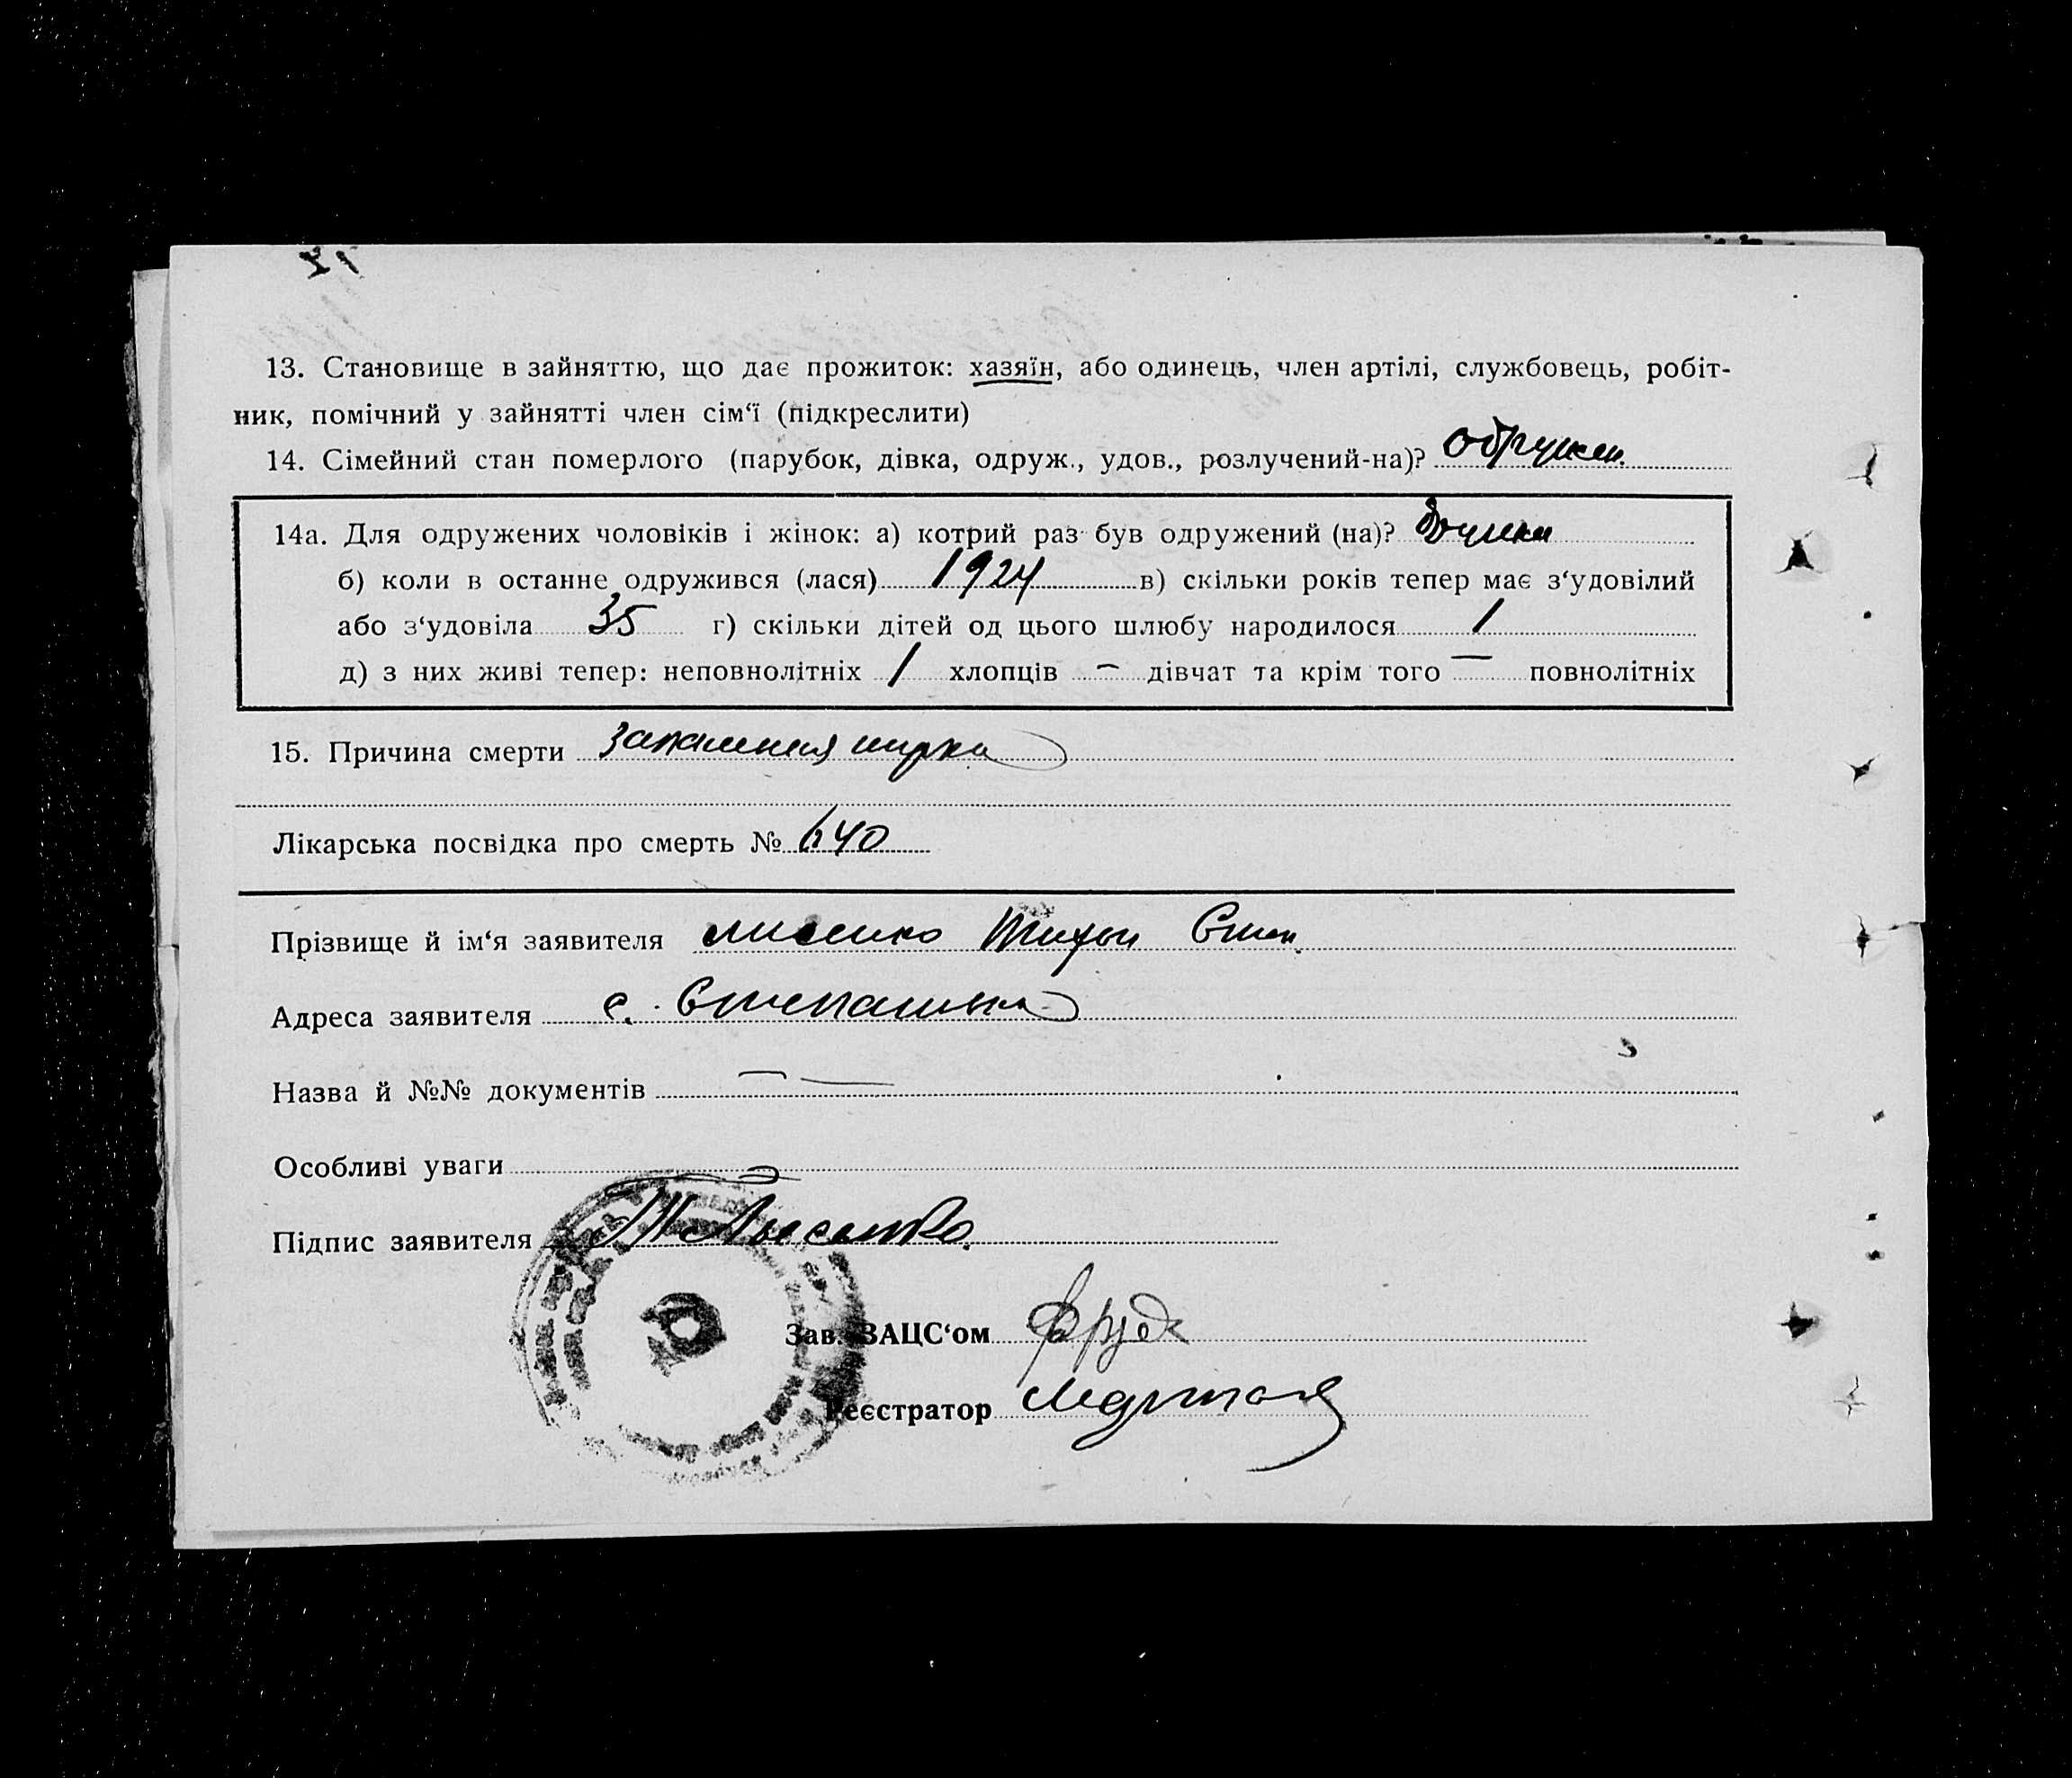 13. Становище в зайняттю, що дає прожиток: хазяїн, або одинець, член артілі, службовець, робіт-
ник, помічний у зайнятті член сім‘ї (підкреслити)
14. Сімейний стан померлого (парубок, дівка, одруж., удов., розлучений-на)? одружен.
14а. Для одружених чоловіків і жінок: а) котрий раз був одружений (на)?
б) коли в останне одружився (лася) 1924 в) скільки років тепер має з‘удовілий
або з‘удовіла 35 г) скільки дітей од цього шлюбу народилося 1
д) з них живі тепер: неповнолітніх 1 хлопців – дівчат та крім того – повнолітніх
15. Причина смерти запалення нирки
Лікарська посвідка про смерть № 640
Прізвище й ім‘я заявителя Лисенко Тихон Степ.
Адреса заявителя с. Степанівка
Назва й №№ документів — —
Особливі уваги
Підпис заявителя Т Лысенко.
Зав. ЗАЦС‘ом
Реєстратор